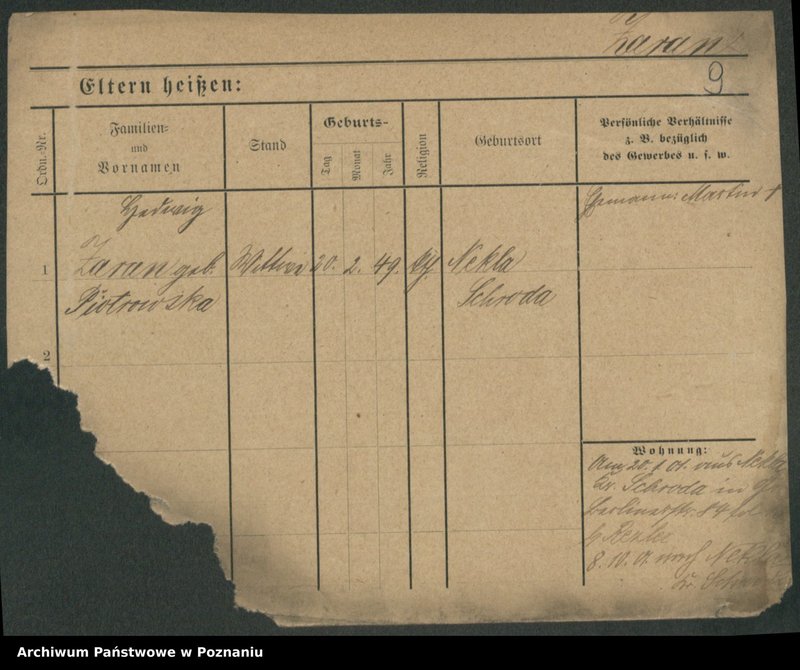 Zaran
9
Eltern heißen:
Ordn.-Nr.
Familien-
und
Vornamen
Stand
Geburts-
Tag
Monat
Jahr
Religion
Geburtsort
Persönliche Verhältnisse
z. B. bezüglich
des Gewerbes u. s. w.
Hedwig
Ehemann: Martin †
1
Zaran geb.
Wittwe
20. 2. 49.
Nekla
Piotrowska
Schroda
2
Wohnung:
Am 20. 1. 01. aus Nekla
Kr. Schroda in
Berlinerstr. 84
b
8. 10. 01 nach Nekla
Kr. Schroda
Archiwum Państwowe w Poznaniu